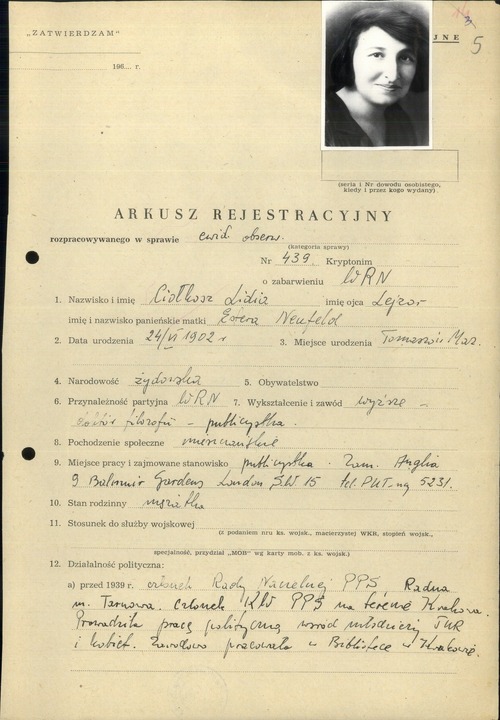 „ZATWIERDZAM"
JNE
3
5
196.... r.
(seria i Nr dowodu osobistego,
kiedy i przez kogo wydany)
ARKUSZ REJESTRACYJNY
rozpracowywanego w sprawie ewid. obserw.
(kategoria sprawy)
Nr 439 Kryptonim
o zabarwieniu WRN
1. Nazwisko i imię Ciołkosz Lidia imię ojca Lejzor
imię i nazwisko panieńskie matki Estera Neufeld
2. Data urodzenia 24/VI 1902 r 3. Miejsce urodzenia Tomaszów Maz.
4. Narodowość żydowska 5. Obywatelstwo
6. Przynależność partyjna WRN 7. Wykształcenie i zawód wyższe –
doktór filozofii – publicystka.
8. Pochodzenie społeczne mieszczańskie
9. Miejsce pracy i zajmowane stanowisko publicystka. Zam. Anglia
9 Balmuir Gardens London SW 15 tel. PUT-ny 5231.
10. Stan rodzinny mężatka
11. Stosunek do służby wojskowej
(z podaniem nru ks. wojsk., macierzystej WKR, stopień wojsk.,
specjalność, przydział „MOB" wg karty mob. z ks. wojsk.)
12. Działalność polityczna:
a) przed 1939 r. członek Rady Naczelnej PPS Radna
m. Tarnowa. członek KW PPS na terenie Krakowa.
Prowadziła pracę polityczną wśród młodzieży TUR
i kobiet. Zawodowo pracowała w Bibliotece w Krakowie.